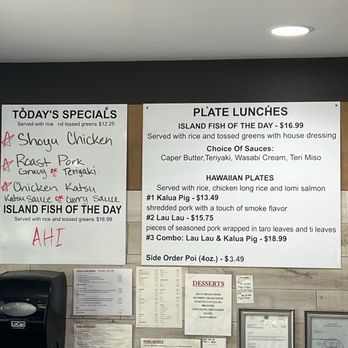 TODAY'S SPECIALS
Served with rice nd tossed greens $12.25
Shoyu Chicken
Roast Pork
Gravy or Teriyaki
Chicken Katsu
Katsu Sauce or Curry Sauce
ISLAND FISH OF THE DAY
Served with rice and tossed greens $16.99
AHI
PLATE LUNCHES
ISLAND FISH OF THE DAY - $16.99
Served with rice and tossed greens with house dressing
Choice Of Sauces:
Caper Butter,Teriyaki, Wasabi Cream, Teri Miso
HAWAIIAN PLATES
Served with rice, chicken long rice and lomi salmon
#1 Kalua Pig - $13.49
shredded pork with a touch of smoke flavor
#2 Lau Lau - $15.75
pieces of seasoned pork wrapped in taro leaves and ti leaves
#3 Combo: Lau Lau & Kalua Pig - $18.99
Side Order Poi (4oz.) - $3.49
DESSERTS